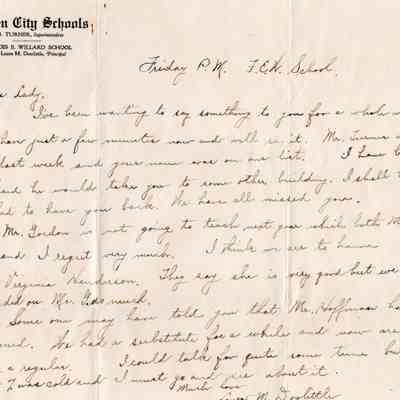 en City Schools
TURNER, Superintendent
CES E. WILLARD SCHOOL
Laura M. Doolittle, Principal
Friday P.M. F.E.W. School.
Lady,
I've been wanting to say something to you for a whole
have just a few minutes now and will say it. Mr. Turner
last week and your name was on our list. I have
said he would take you to some other building. I shall
glad to have you back. We have all missed you.
Mr. Gordon is not going to teach next year which both
and I regret very much. I think we are to have
Virginia Henderson. They say she is very good but we
ded on Mr. much.
Some one may have told you that Mr. Hoffman
ned. We had a substitute for a while and now are
a regular. I could talk for quite some time
was cold and I must go and see about it.
Much love
M. Doolittle